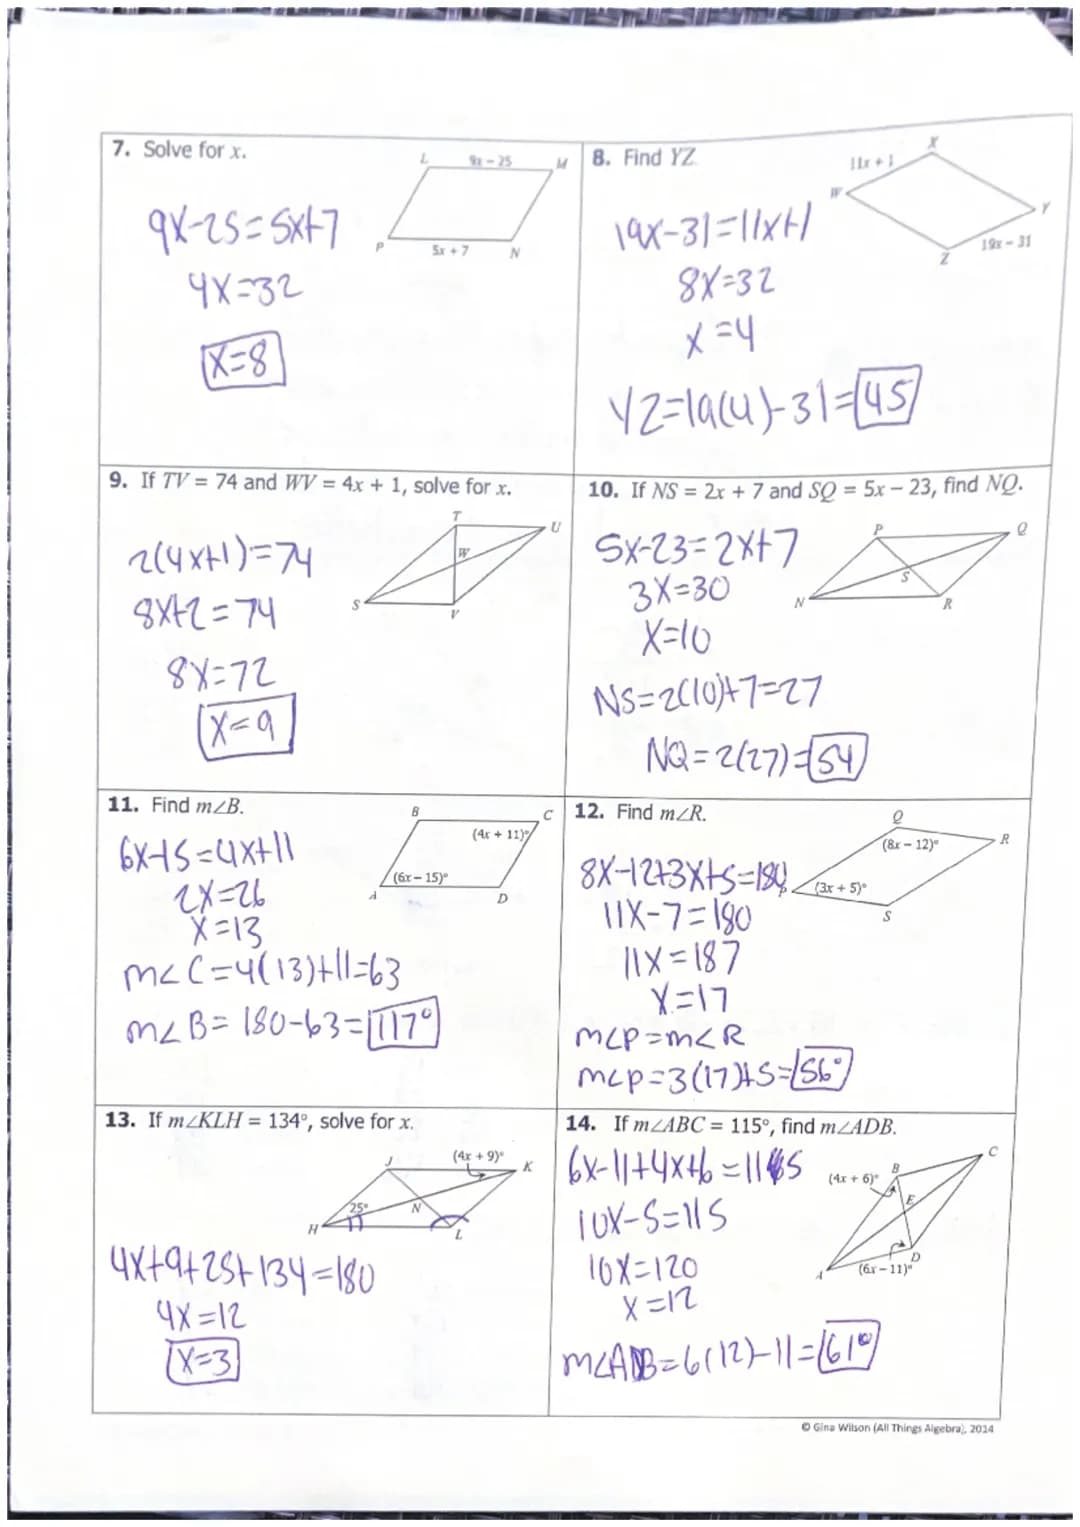 7. Solve for x.
L
9x – 25
M
P
5x + 7
N
9x-25=5x+7
4x=32
x=8
8. Find YZ.
X
11x + 1
W
Y
19x – 31
Z
19x-31=11x+1
8x=32
x=4
YZ=19(4)-31=45
9. If TV = 74 and WV = 4x + 1, solve for x.
T
U
W
S
V
2(4x+1)=74
8x+2=74
8x=72
x=9
10. If NS = 2x + 7 and SQ = 5x – 23, find NQ.
P
Q
S
N
R
5x-23=2x+7
3x=30
x=10
NS=2(10)+7=27
NQ=2(27)=54
11. Find m∠B.
B
C
(4x + 11)°
(6x – 15)°
A
D
6x-15=4x+11
2x=26
x=13
m∠C=4(13)+11=63
m∠B=180-63=117°
12. Find m∠R.
Q
(8x – 12)°
R
P
(3x + 5)°
S
8x-12+3x+5=180
11x-7=180
11x=187
x=17
m∠P=m∠R
m∠P=3(17)+5=56°
13. If m∠KLH = 134°, solve for x.
(4x + 9)°
J
K
25°
N
H
L
4x+9+25+134=180
4x=12
x=3
14. If m∠ABC = 115°, find m∠ADB.
C
B
(4x + 6)°
E
D
A
(6x – 11)°
6x-11+4x+6=115
10x-5=115
10x=120
x=12
m∠ADB=6(12)-11=61°
© Gina Wilson (All Things Algebra), 2014